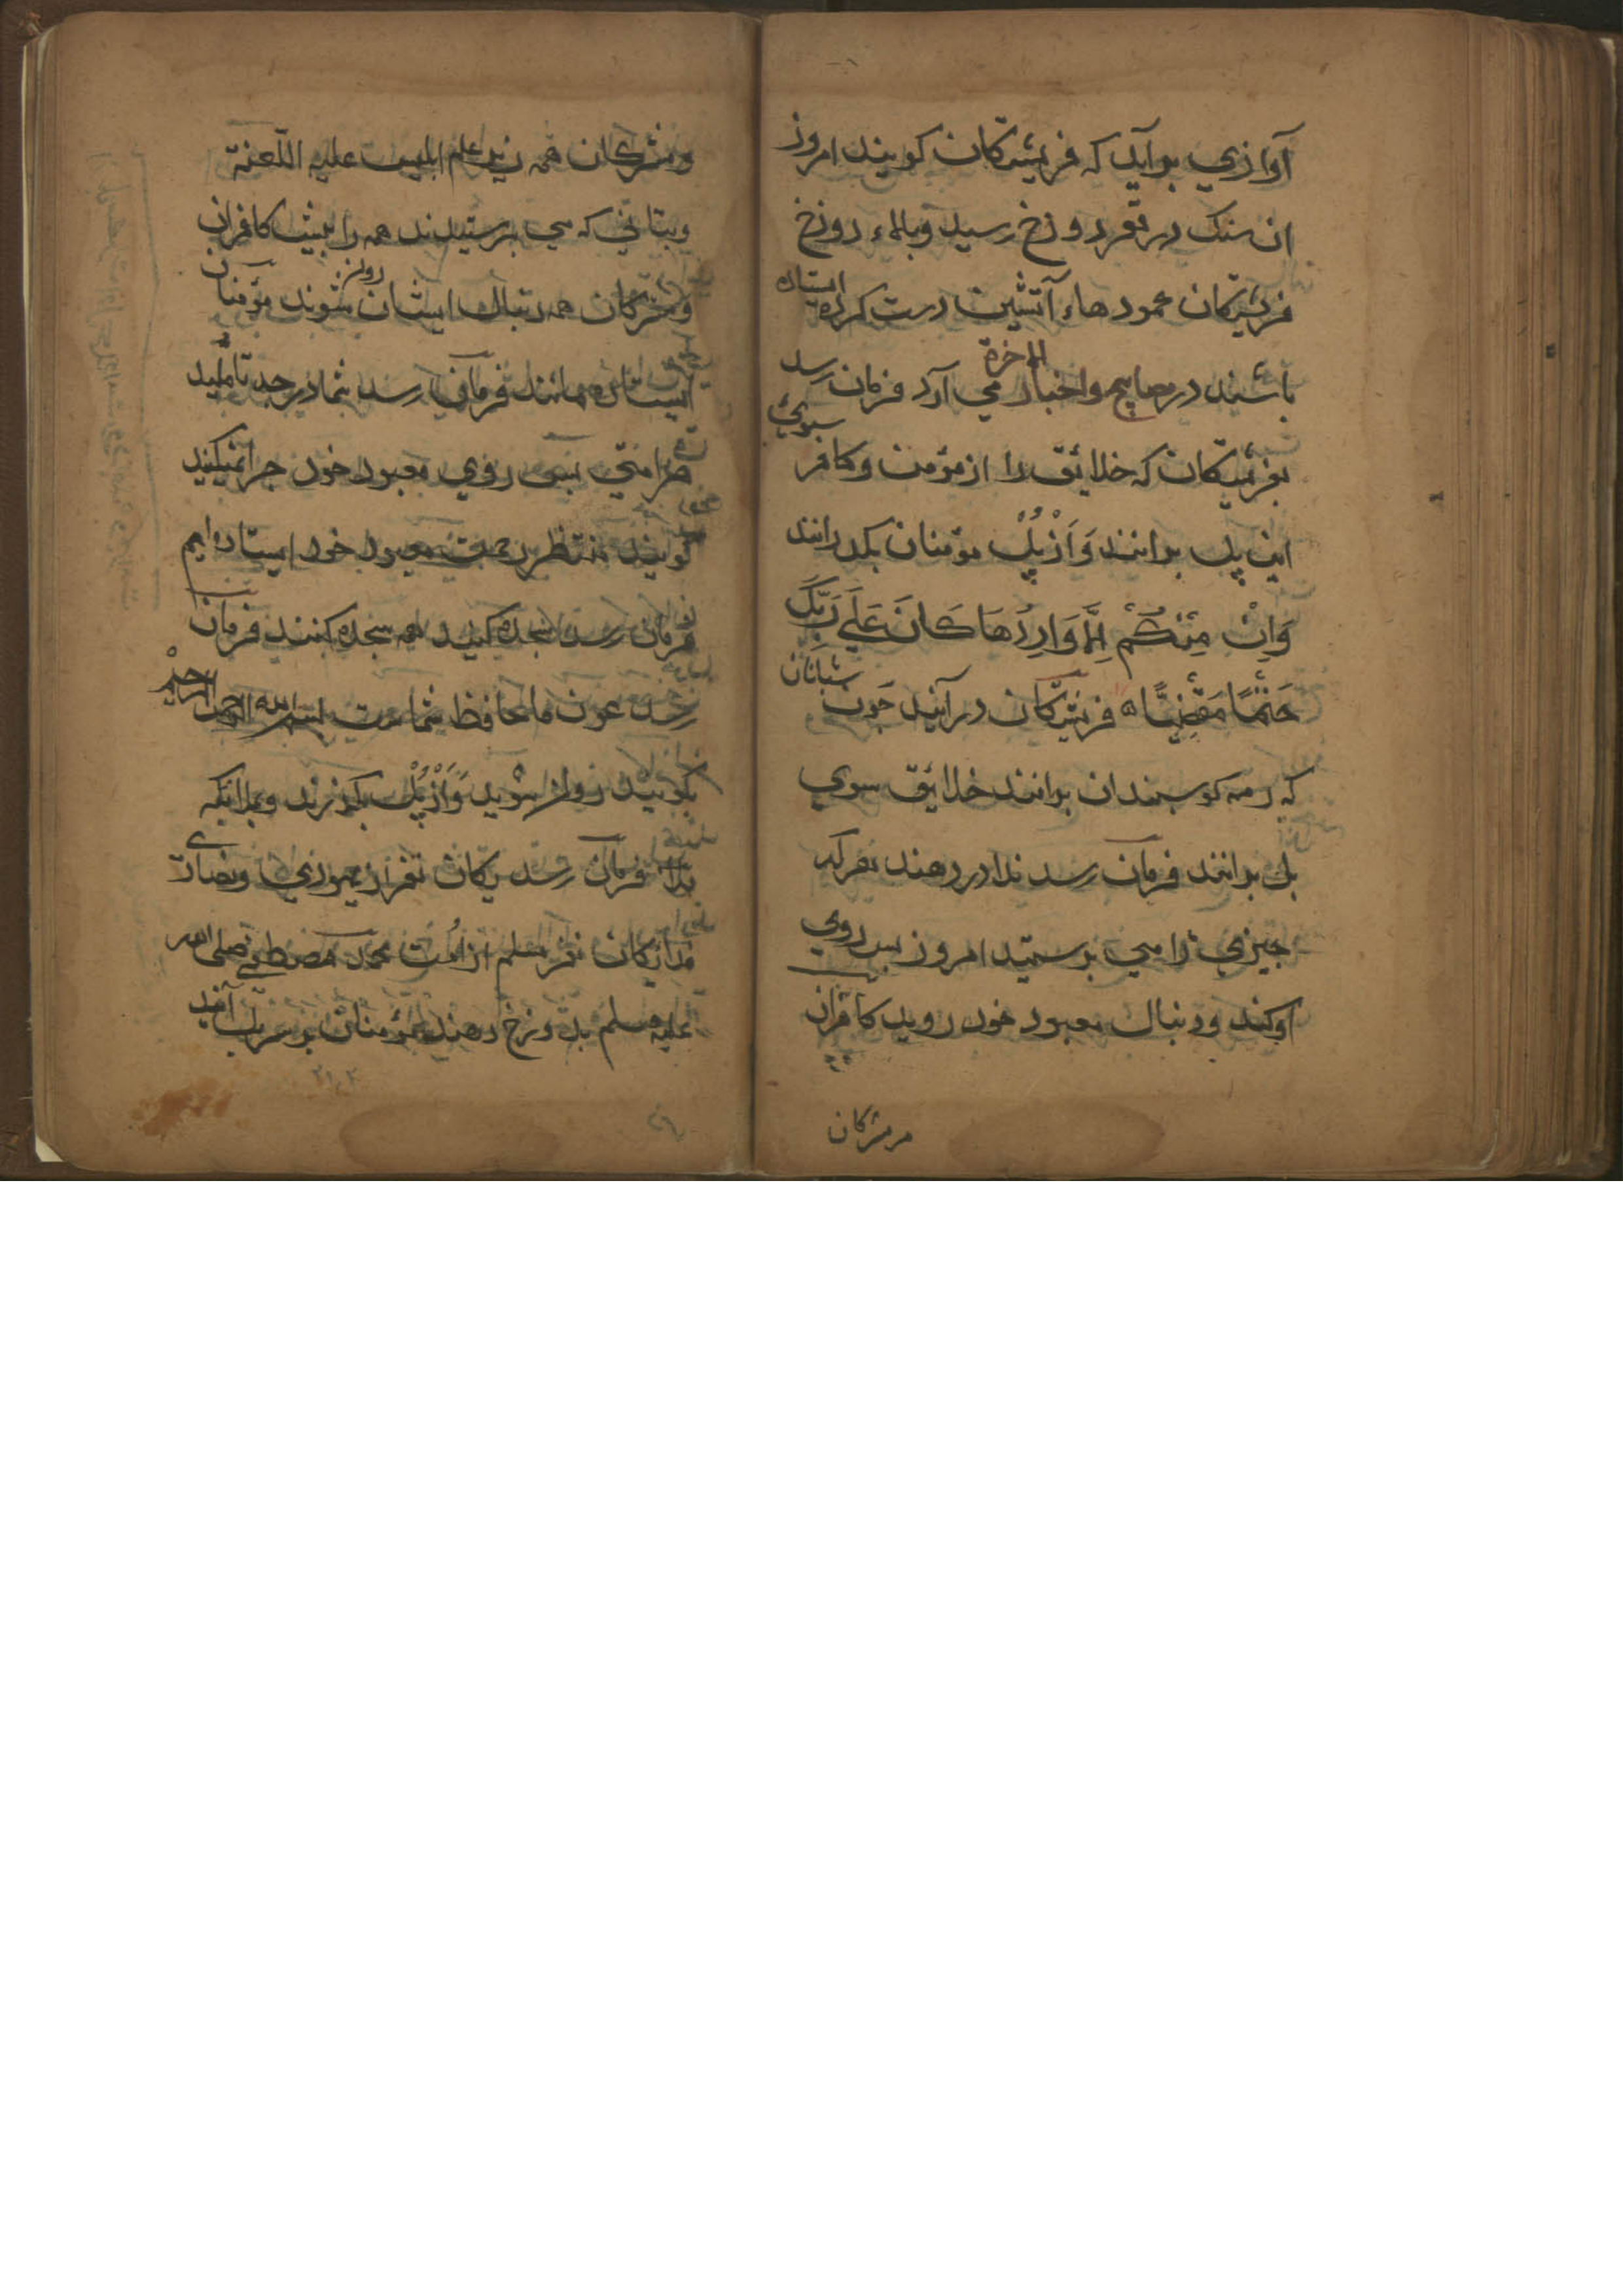 آوازي برآيد كه فريشتكان كويند امروز
ان سنك در قعر دوزخ رسيد و بالاء دوزخ
فريشتكان عمودهاء آتشين درست كرده ايستاده
باشند در مصابيح واخبار الاخرة مي آرد فرمان رسد
بفريشتكان كه خلائق را از مؤمن و كافر سوي
اين پل برانند وَاَزْ پُلْ مؤمنان بكذرانند
وَاِنْ مِنْكُمْ اِلَّا وَارِدُهَا كَانَ عَلَى رَبِّكَ
حَتْمًا مَقْضِيًّا ه فريشتكان درآيند جون شبانان
كه رمه كوسبندان برانند خلائق سوي
پل برانند فرمان رسد ندا در دهند هركه
جيزي را مي برستيد امروز بس روي
او كند و دنبال معبود خود رويد كافران
مرمشركان
ومشركان همه زير علم ابليس عليه اللّعنة
وبتاني كه مي برستيدند همه را بيش كافران
ومشركان همه دنبال ايشان روان شوند مؤمنان
ايستاده مانند فرماني رسد شما در جه تأمليد
بس روي معبود خود جرا نميكنيد
كويند منتظر رحمت معبود خود ايستاده ايم
فرمان رسد سجده كنيد همه سجده كنند فرمان
رسد عون ما حافظ شماست بسم الله الرحمن الرحيم
بكوئيد روان شويد وَاَزْ پُلْ بكذرند وبدانكه
فرمان رسد يكان نفر از يهودي ونصاري
يكان نفر مسلم از امت محمد مصطفي صلى الله
عليه وسلم بدوزخ دهند مؤمنان بر سر پل آيند